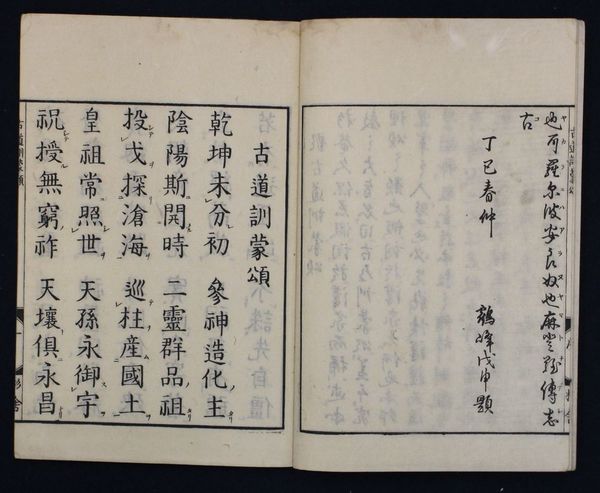 也可羅尓波安良奴也麻登 傳志
古
丁巳春仲
鶴峰戊申題
古道訓蒙頌
乾坤未分初 參神造化主
陰陽斯開時 二靈群品祖
投戈探滄海 巡柱産國土
皇祖常照世 天孫永御宇
祝授無窮祚 天壤俱永昌
古道訓蒙頌 一